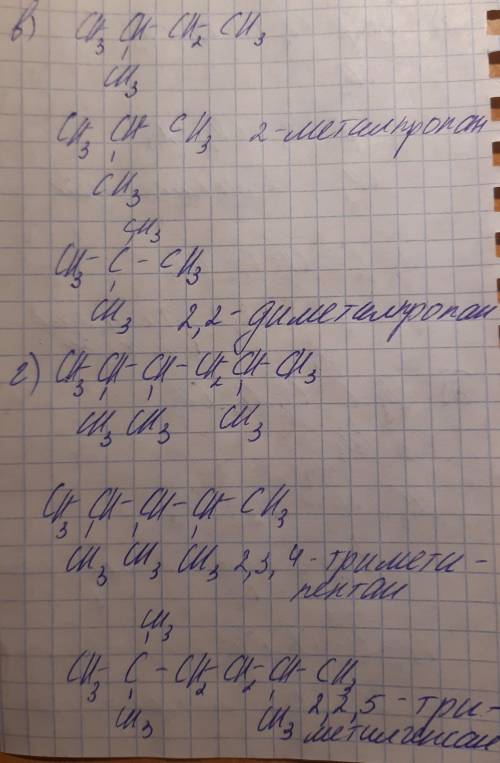 в) CH3 CH – CH2 CH3
CH3
CH3 CH CH3 2-метилпропан
CH3
CH3
CH3 – C – CH3
CH3 2,2-диметилпропан
г) CH3 CH – CH – CH2 CH – CH3
CH3 CH3 CH3
CH3 CH – CH – CH – CH3
CH3 CH3 CH3 2,3,4-тримети-
пентан
CH3
CH3 – C – CH2 CH2 – CH – CH3
CH3 CH3 2,2,5-три-
метилгексан